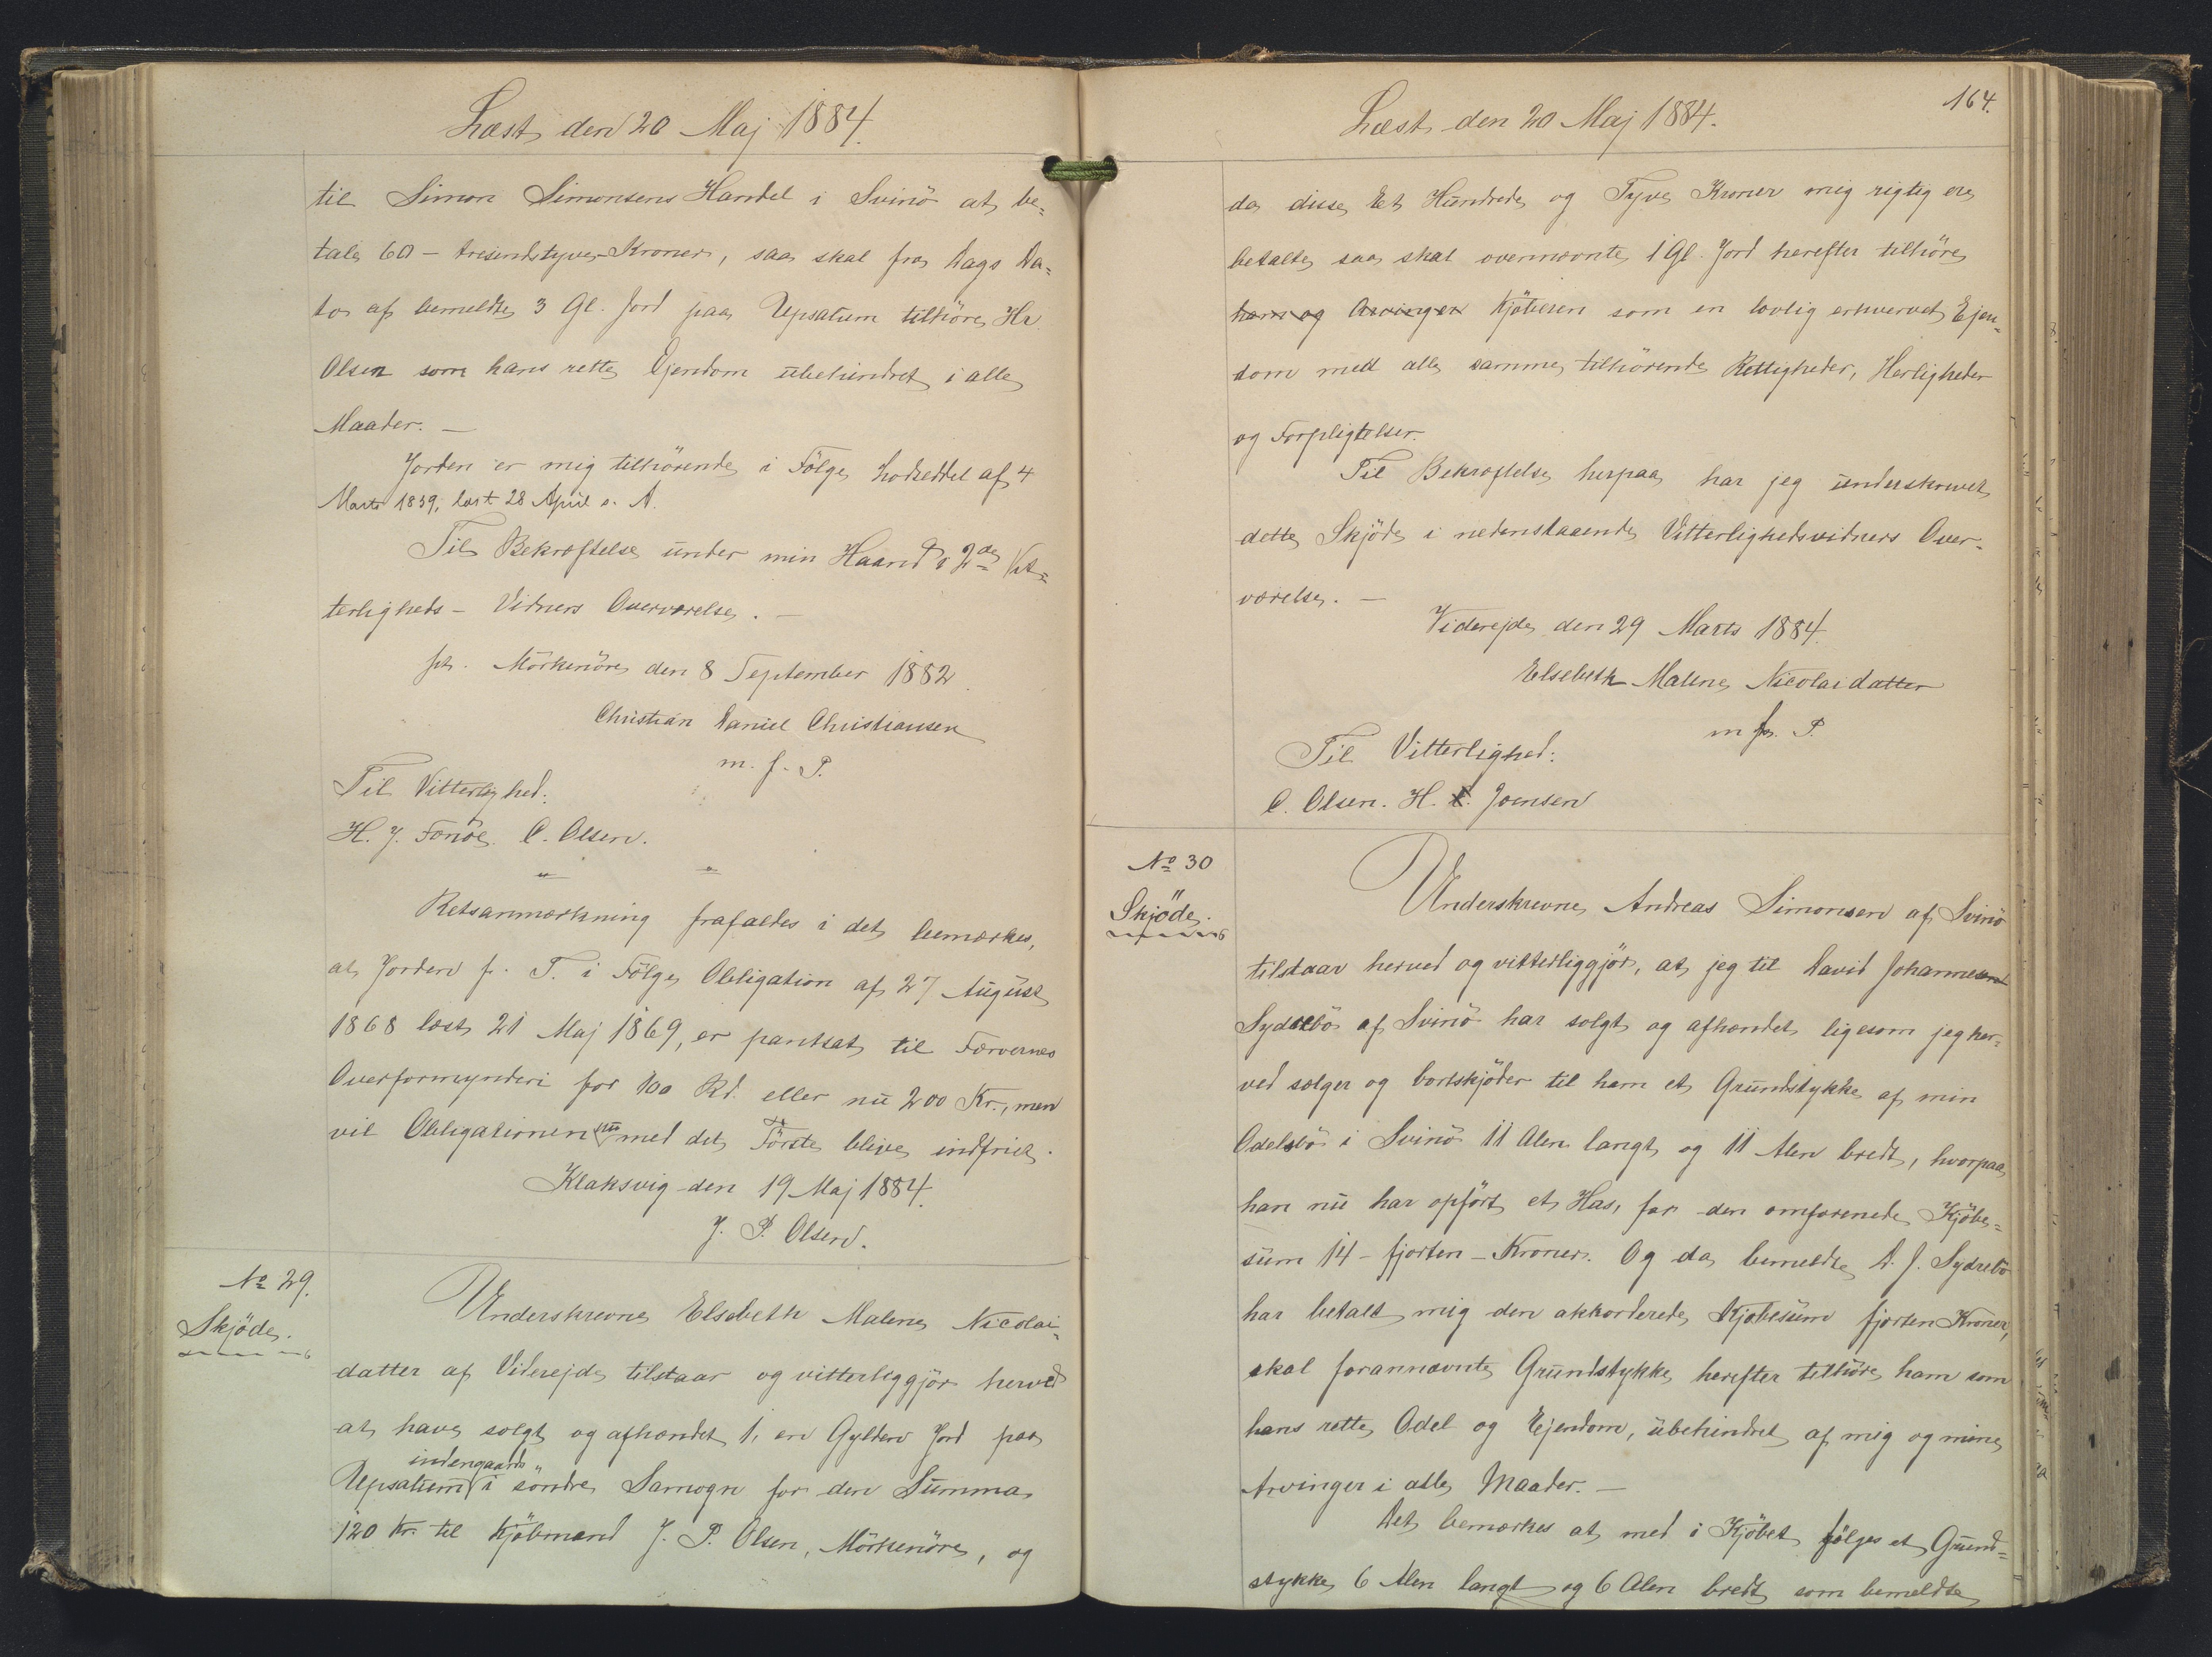 Læst den 20 Maj 1884.
til Simon Simonsens Handel i Svinö at be=
tale 60 - tresindstyve - Kroner, saa skal fra Dags Da=
to af bemeldte 3 Gl. Jord paa Upsalum tilhöre Hr.
Olsen som hans rette Ejendom ubehindret i alle
Maader. —
Jorden er mig tilhörende i Fölge Lodseddel af 4
Marts 1839, læst 28 April s. A.
Til Bekræftelse under min Haand i 2de Vit=
terligheds - Vidners Overværelse. —
pt. Mörkenöre den 8 September 1882.
Christian Daniel Christiansen
m. f. P.
Til Vitterlighed:
H. J. Fonöe. C. Olsen.
Retsanmærkning frafaldes i det bemærkes,
at Jorden f. T. i Fölge Obligation af 27 August
1868 læst 21 Maj 1869, er pantsat til Færöernes
Overformynderi for 100 Rd. eller nu 200 Kr., men
vil Obligationen nu med det Förste blive indfriet.
Klaksvig den 19 Maj 1884.
J. P. Olsen.
No 29.
Skjöde.
Underskrevne Elsebeth Malene Nicolai=
datter af Viderejde tilstaar og vitterliggjör herved
at have solgt og afhændet 1, en Gylden Jord paa
indengaards
Upsalum i söndre Samogn for den Summa
120 Kr. til Kjöbmand J. P. Olsen, Mörkenöre, og
Læst den 20 Maj 1884.
164.
da disse Et Hundrede og Tyve Kroner mig rigtig ere
betalte saa skal overnævnte 1 Gl. Jord herefter tilhöre
ham og Arvinger Kjöberen som en lovlig erhvervet Ejen=
dom med alle samme tilhörende Rettigheder, Herligheder
og Forpligtelser.
Til Bekræftelse herpaa har jeg underskrevet
dette Skjöde i nedenstaaende Vitterlighedsvidners Over=
værelse. —
Viderejde den 29 Marts 1884.
Elsebeth Malene Nicolaidatter
m f. P.
Til Vitterlighed:
C. Olsen. H. Joensen
No 30
Skjöde.
Underskrevne Andreas Simonsen af Svinö
tilstaar herved og vitterliggjör, at jeg til David Johannesen
Sydrebö af Svinö har solgt og afhændet ligesom jeg her=
ved sælger og bortskjöder til ham et Grundstykke af min
Odelsbö i Svinö 11 Alen langt og 11 Alen bredt, hvorpaa
han nu har opfört et Hus, for den omforenede Kjöbe=
sum 14 - fjorten - Kroner. Og da bemeldte D. J. Sydrebö
har betalt mig den akkorderede Kjöbesum fjorten Kroner,
skal forannævnte Grundstykke herefter tilhöre ham som
hans rette Odel og Ejendom, ubehindret af mig og mine
Arvinger i alle Maader. —
Det bemærkes at med i Kjöbet fölges et Grund=
stykke 6 Alen langt og 6 Alen bredt som bemeldte